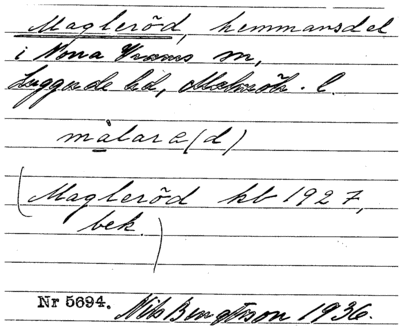 Magleröd, hemmansdel
i Norra Vrams sn,
Luggude hd, Malmöh. l.
målare(d)
(Magleröd kb 1927,
bek.)
Nr 5694. Nils Bengtsson 1936.